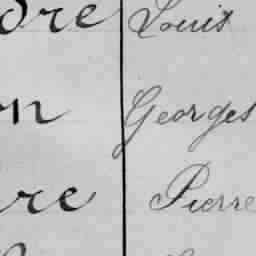 dre Louis
on Georges
re Pierre